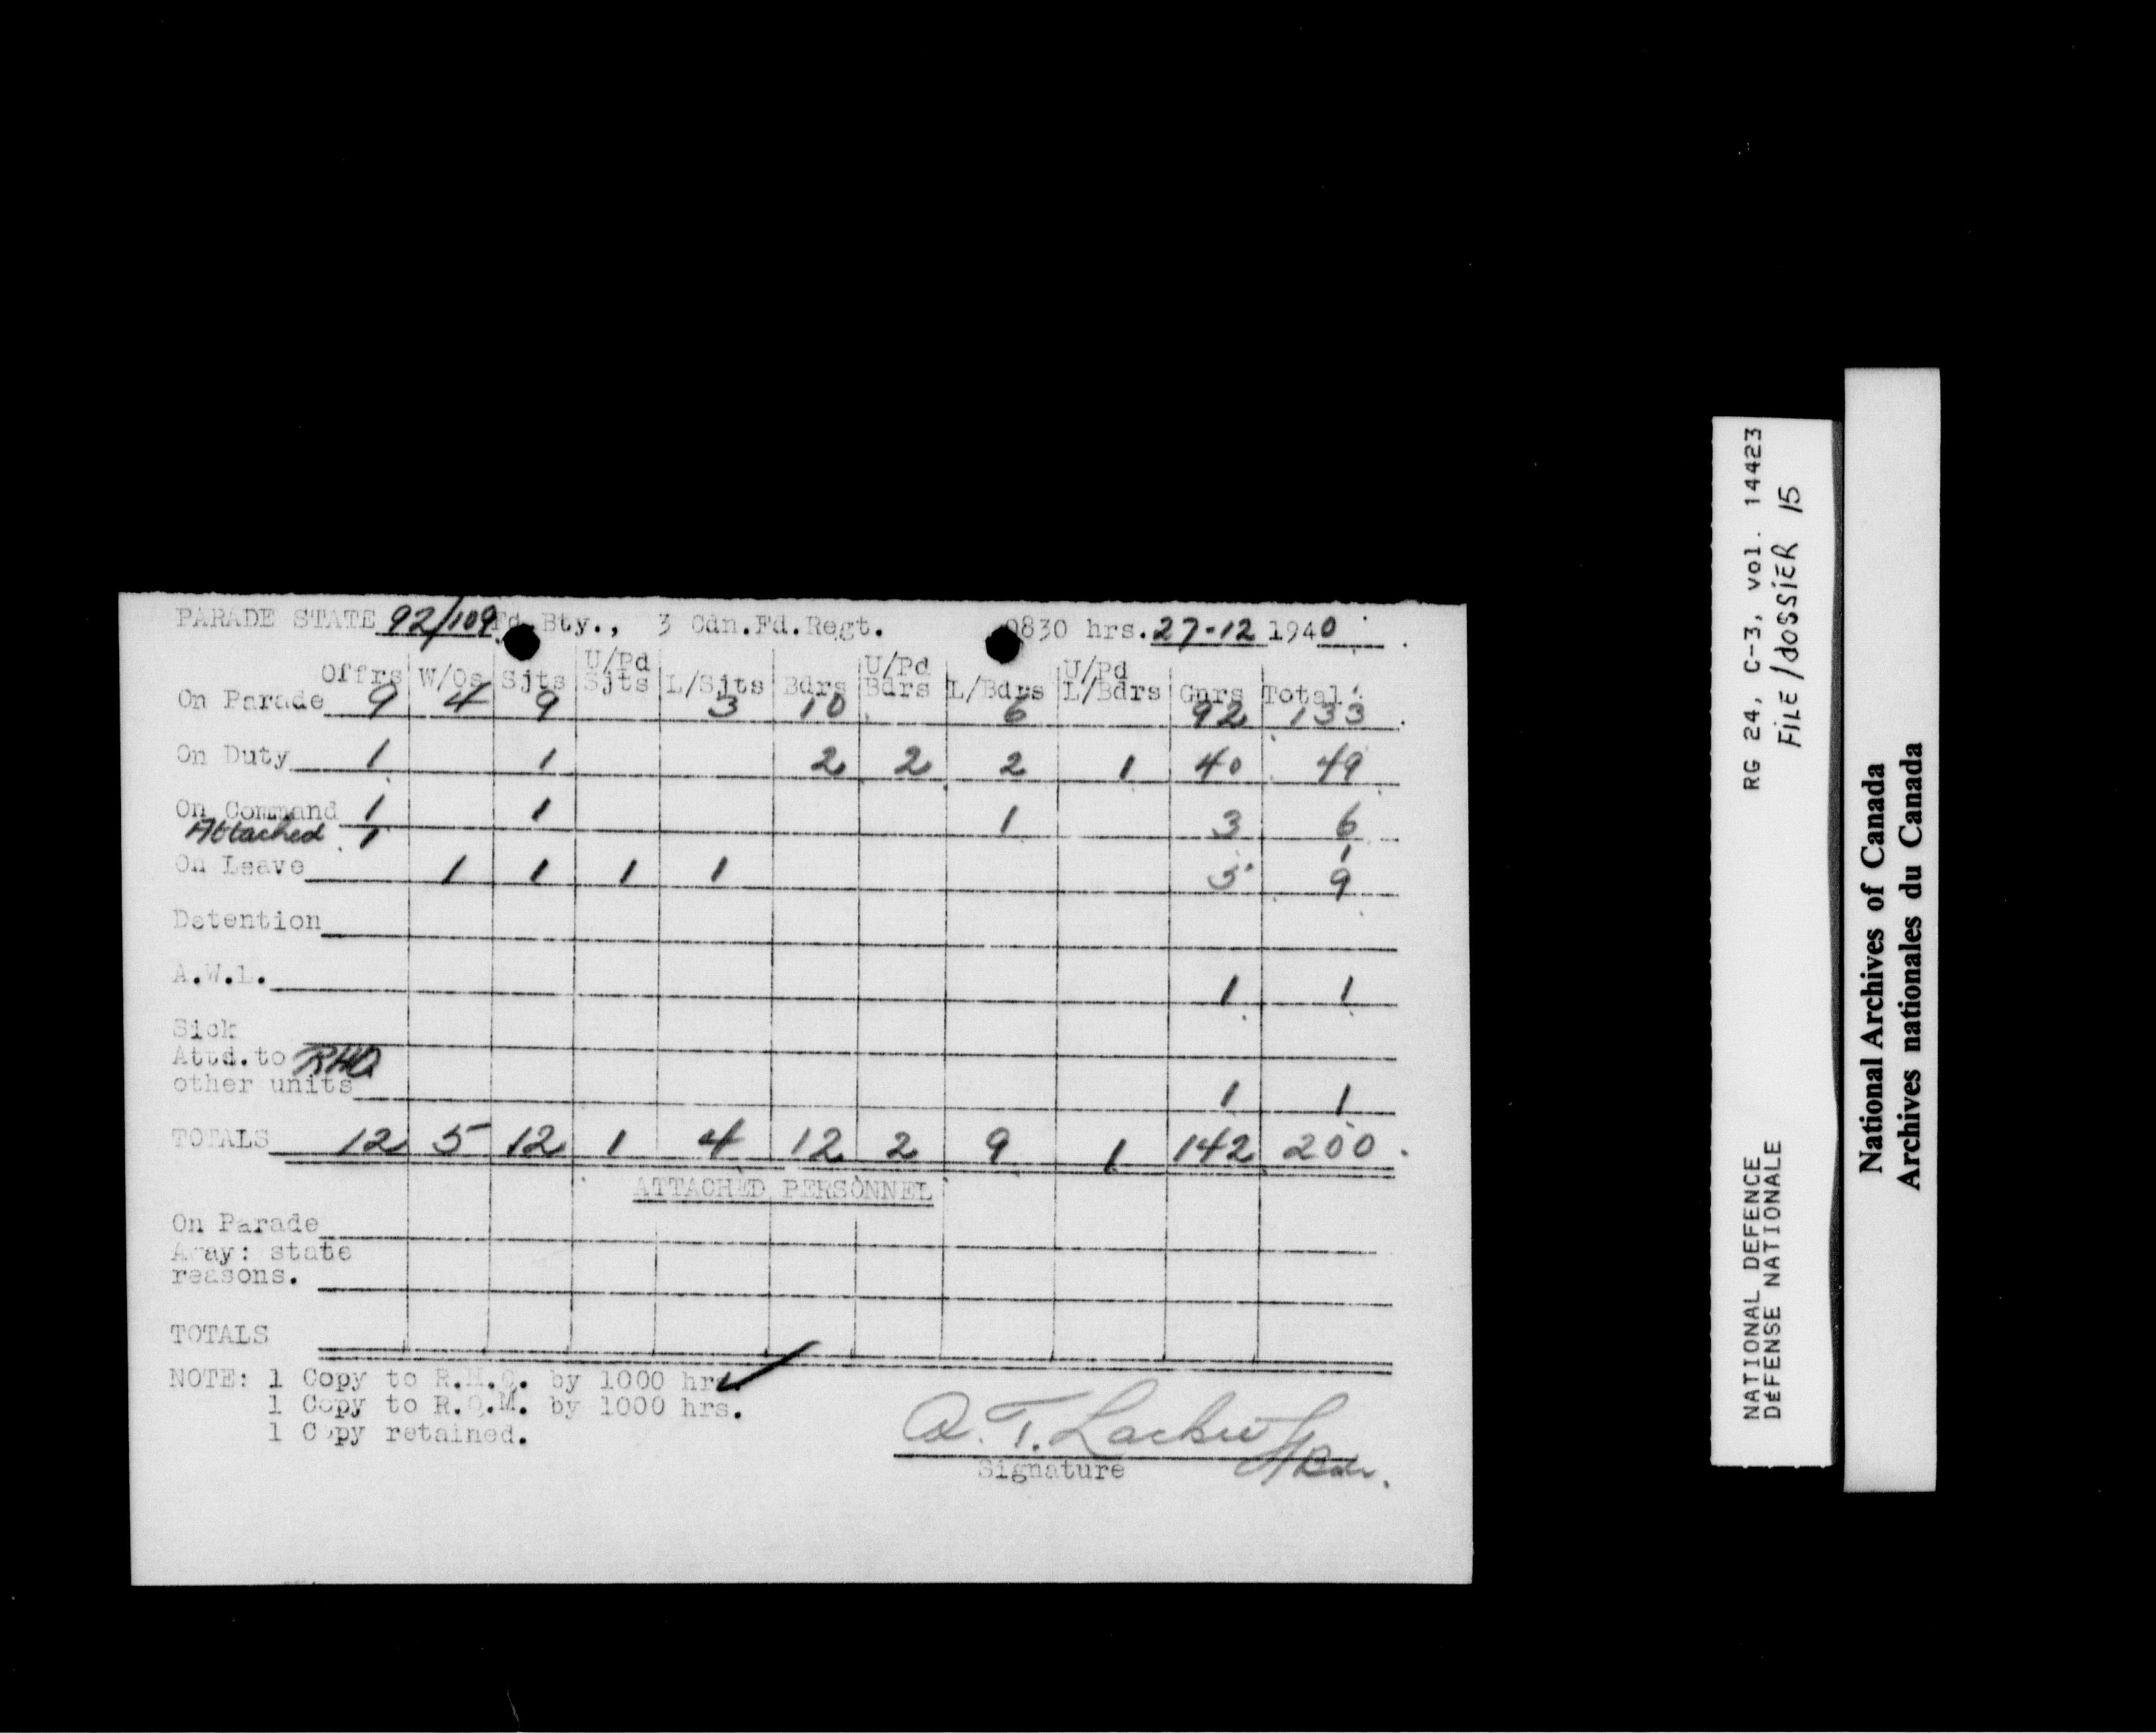 PARADE STATE 92/109 Fd.Bty., 3 Cdn.Fd.Regt. 0830 hrs. 27-12 1940
Offrs W/Os Sjts U/Pd Sjts L/Sjts Bdrs U/Pd Bdrs L/Bdrs U/Pd L/Bdrs Gnrs Total
On Parade 9 4 9 3 10 6 92 133
On Duty 1 1 2 2 2 1 40 49
On Command 1 1 1 3 6
Attached 1 1
On Leave 1 1 1 1 5 9
Detention
A.W.L. 1 1
Sick
Attd. to RHQ
other units 1 1
TOTALS 12 5 12 1 4 12 2 9 1 142 200
ATTACHED PERSONNEL
On Parade
Away: state
reasons.
TOTALS
NOTE: 1 Copy to R.H.Q. by 1000 hrs.
1 Copy to R.Q.M. by 1000 hrs.
1 Copy retained.
A. T. L/Bdr.
Signature
RG 24, C-3, vol. 14423
FILE/dOSSIER 15
NATIONAL DEFENCE
DÉFENSE NATIONALE
National Archives of Canada
Archives nationales du Canada